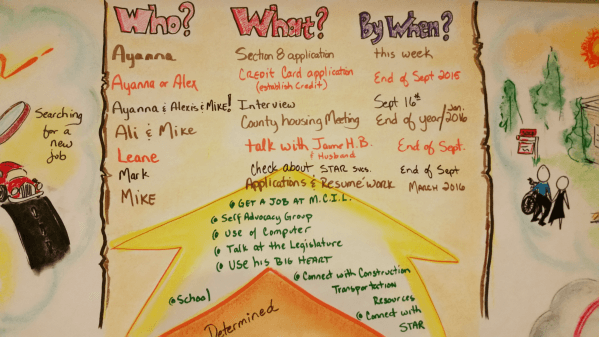 Who? What? By When?
Ayanna Section 8 application this week
Ayanna or Alex Credit Card application End of Sept 2015
(establish Credit)
Ayanna & Alexis & Mike! Interview Sept 16th
Ali & Mike County housing Meeting End of year/Jan. 2016
Leane talk with Jamie H.B. End of Sept.
& Husband
Mark Check about STAR svcs. End of Sept
Mike Applications & Resume work March 2016
Searching
for a
new
job
@ GET A JOB AT M.C.I.L.
@ Self Advocacy Group
@ Use of Computer
@ Talk at the Legislature
@ Use his BIG HEART
@ School
@ Connect with Construction
Transportation
Resources
@ Connect with
STAR
Determined